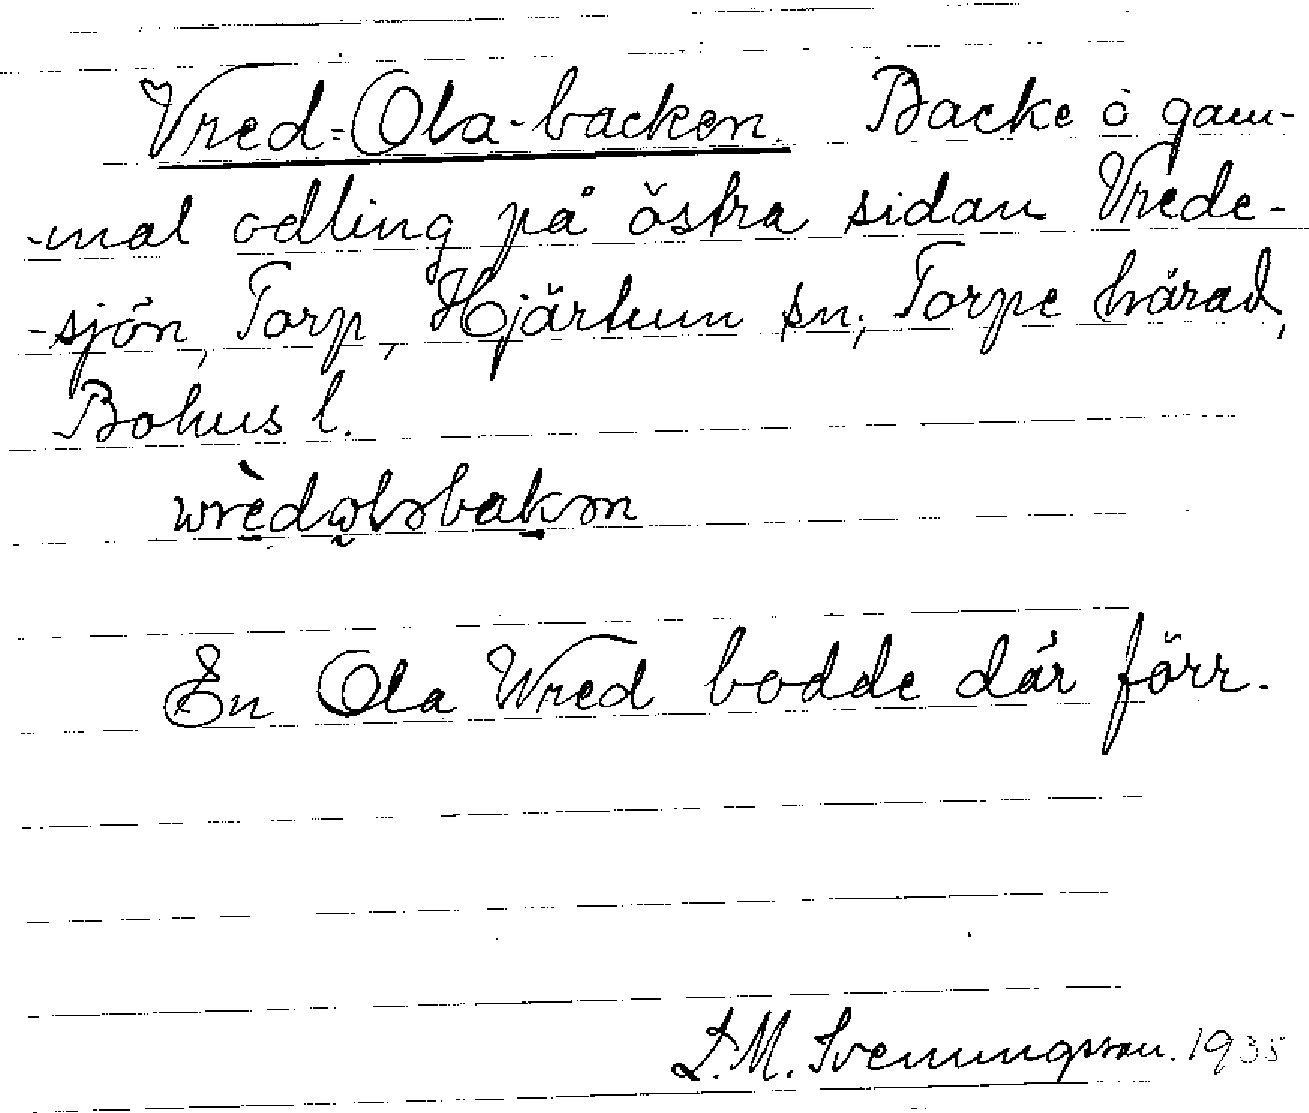 Vred-Ola-backen. Backe o gam-
-mal odling på östra sidan Vrede-
-sjön, Torp, Hjärtum sn; Torpe härad,
Bohus l.
En Ola Wred bodde där förr.
L.M. Svenungsson. 1935